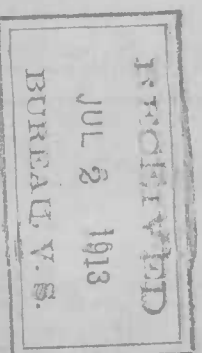 RECEIVED
JUL 2 1913
BUREAU, V. S.